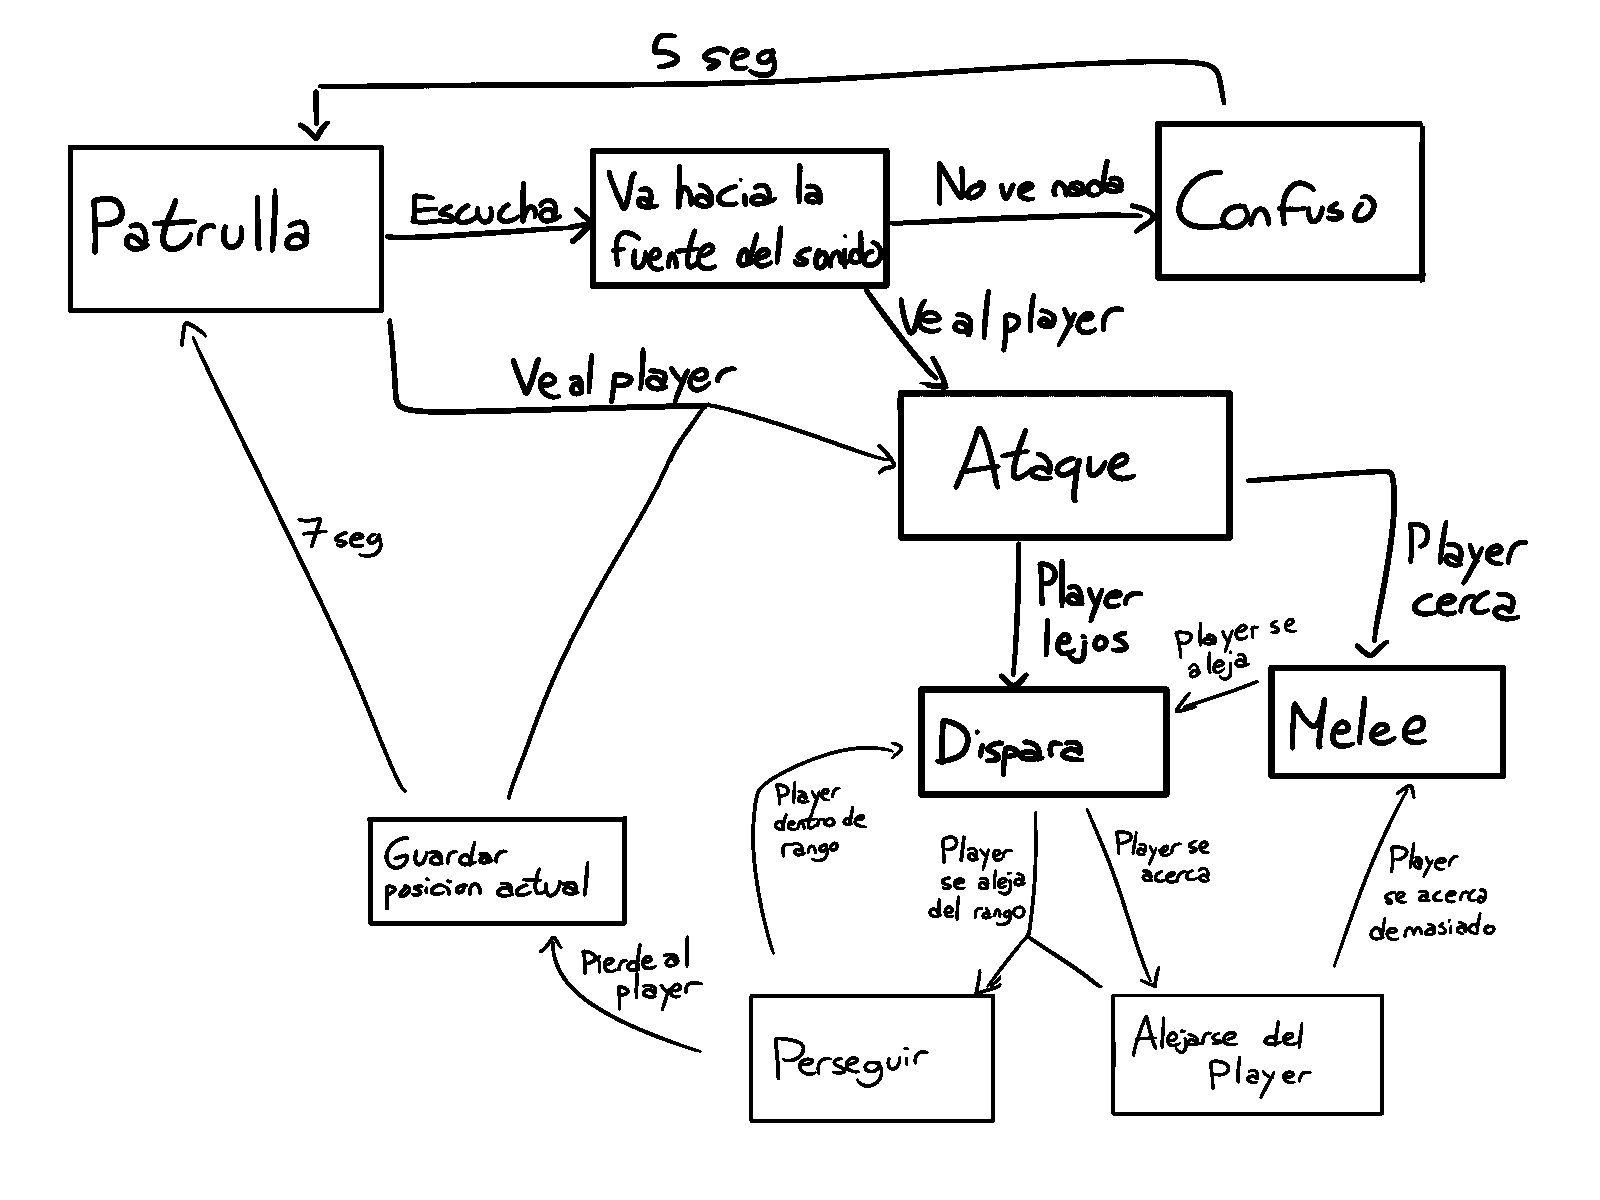 5 seg
Patrulla
Escucha
Va hacia la
fuente del sonido
No ve nada
Confuso
Ve al player
Ve al player
Ataque
7 seg
Player
lejos
Player
cerca
Player se
aleja
Dispara
Melee
Player
dentro de
rango
Player
se aleja
del rango
Player se
acerca
Player
se acerca
demasiado
Guardar
posicion actual
Pierde al
player
Perseguir
Alejarse del
Player